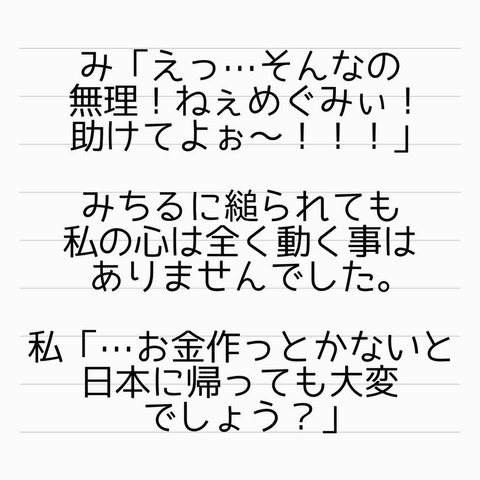 み「えっ…そんなの
無理！ねぇめぐみぃ！
助けてよぉ〜！！！」
みちるに縋られても
私の心は全く動く事は
ありませんでした。
私「…お金作っとかないと
日本に帰っても大変
でしょう？」